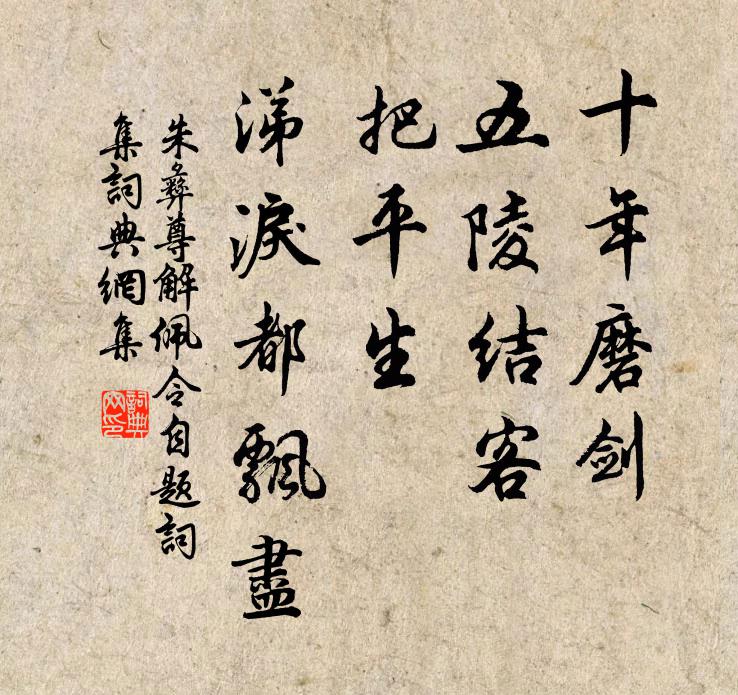 十年磨剑
五陵结客
把平生
涕淚都飄盡
朱彝尊解佩令自题詞
集詞典網集
詞典
网印